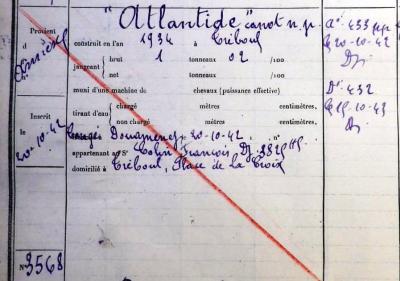 "Atlantide" canot n.p.
Provient
d
construit en l'an 1934 à Tréboul
jaugeant brut 1 tonneaux 02 /100
net tonneaux /100
muni d'une machine de chevaux (puissance effective)
tirant d'eau chargé mètres centimètres,
non chargé mètres centimètres,
Inscrit
le
20-10-42
Congés Douarnenez 20-10-42, n°
appartenant au Sr Colin François Dz
domicilié à Tréboul, Place de la Croix
N° 3568
20-10-42
Dz
D: 432
Dz